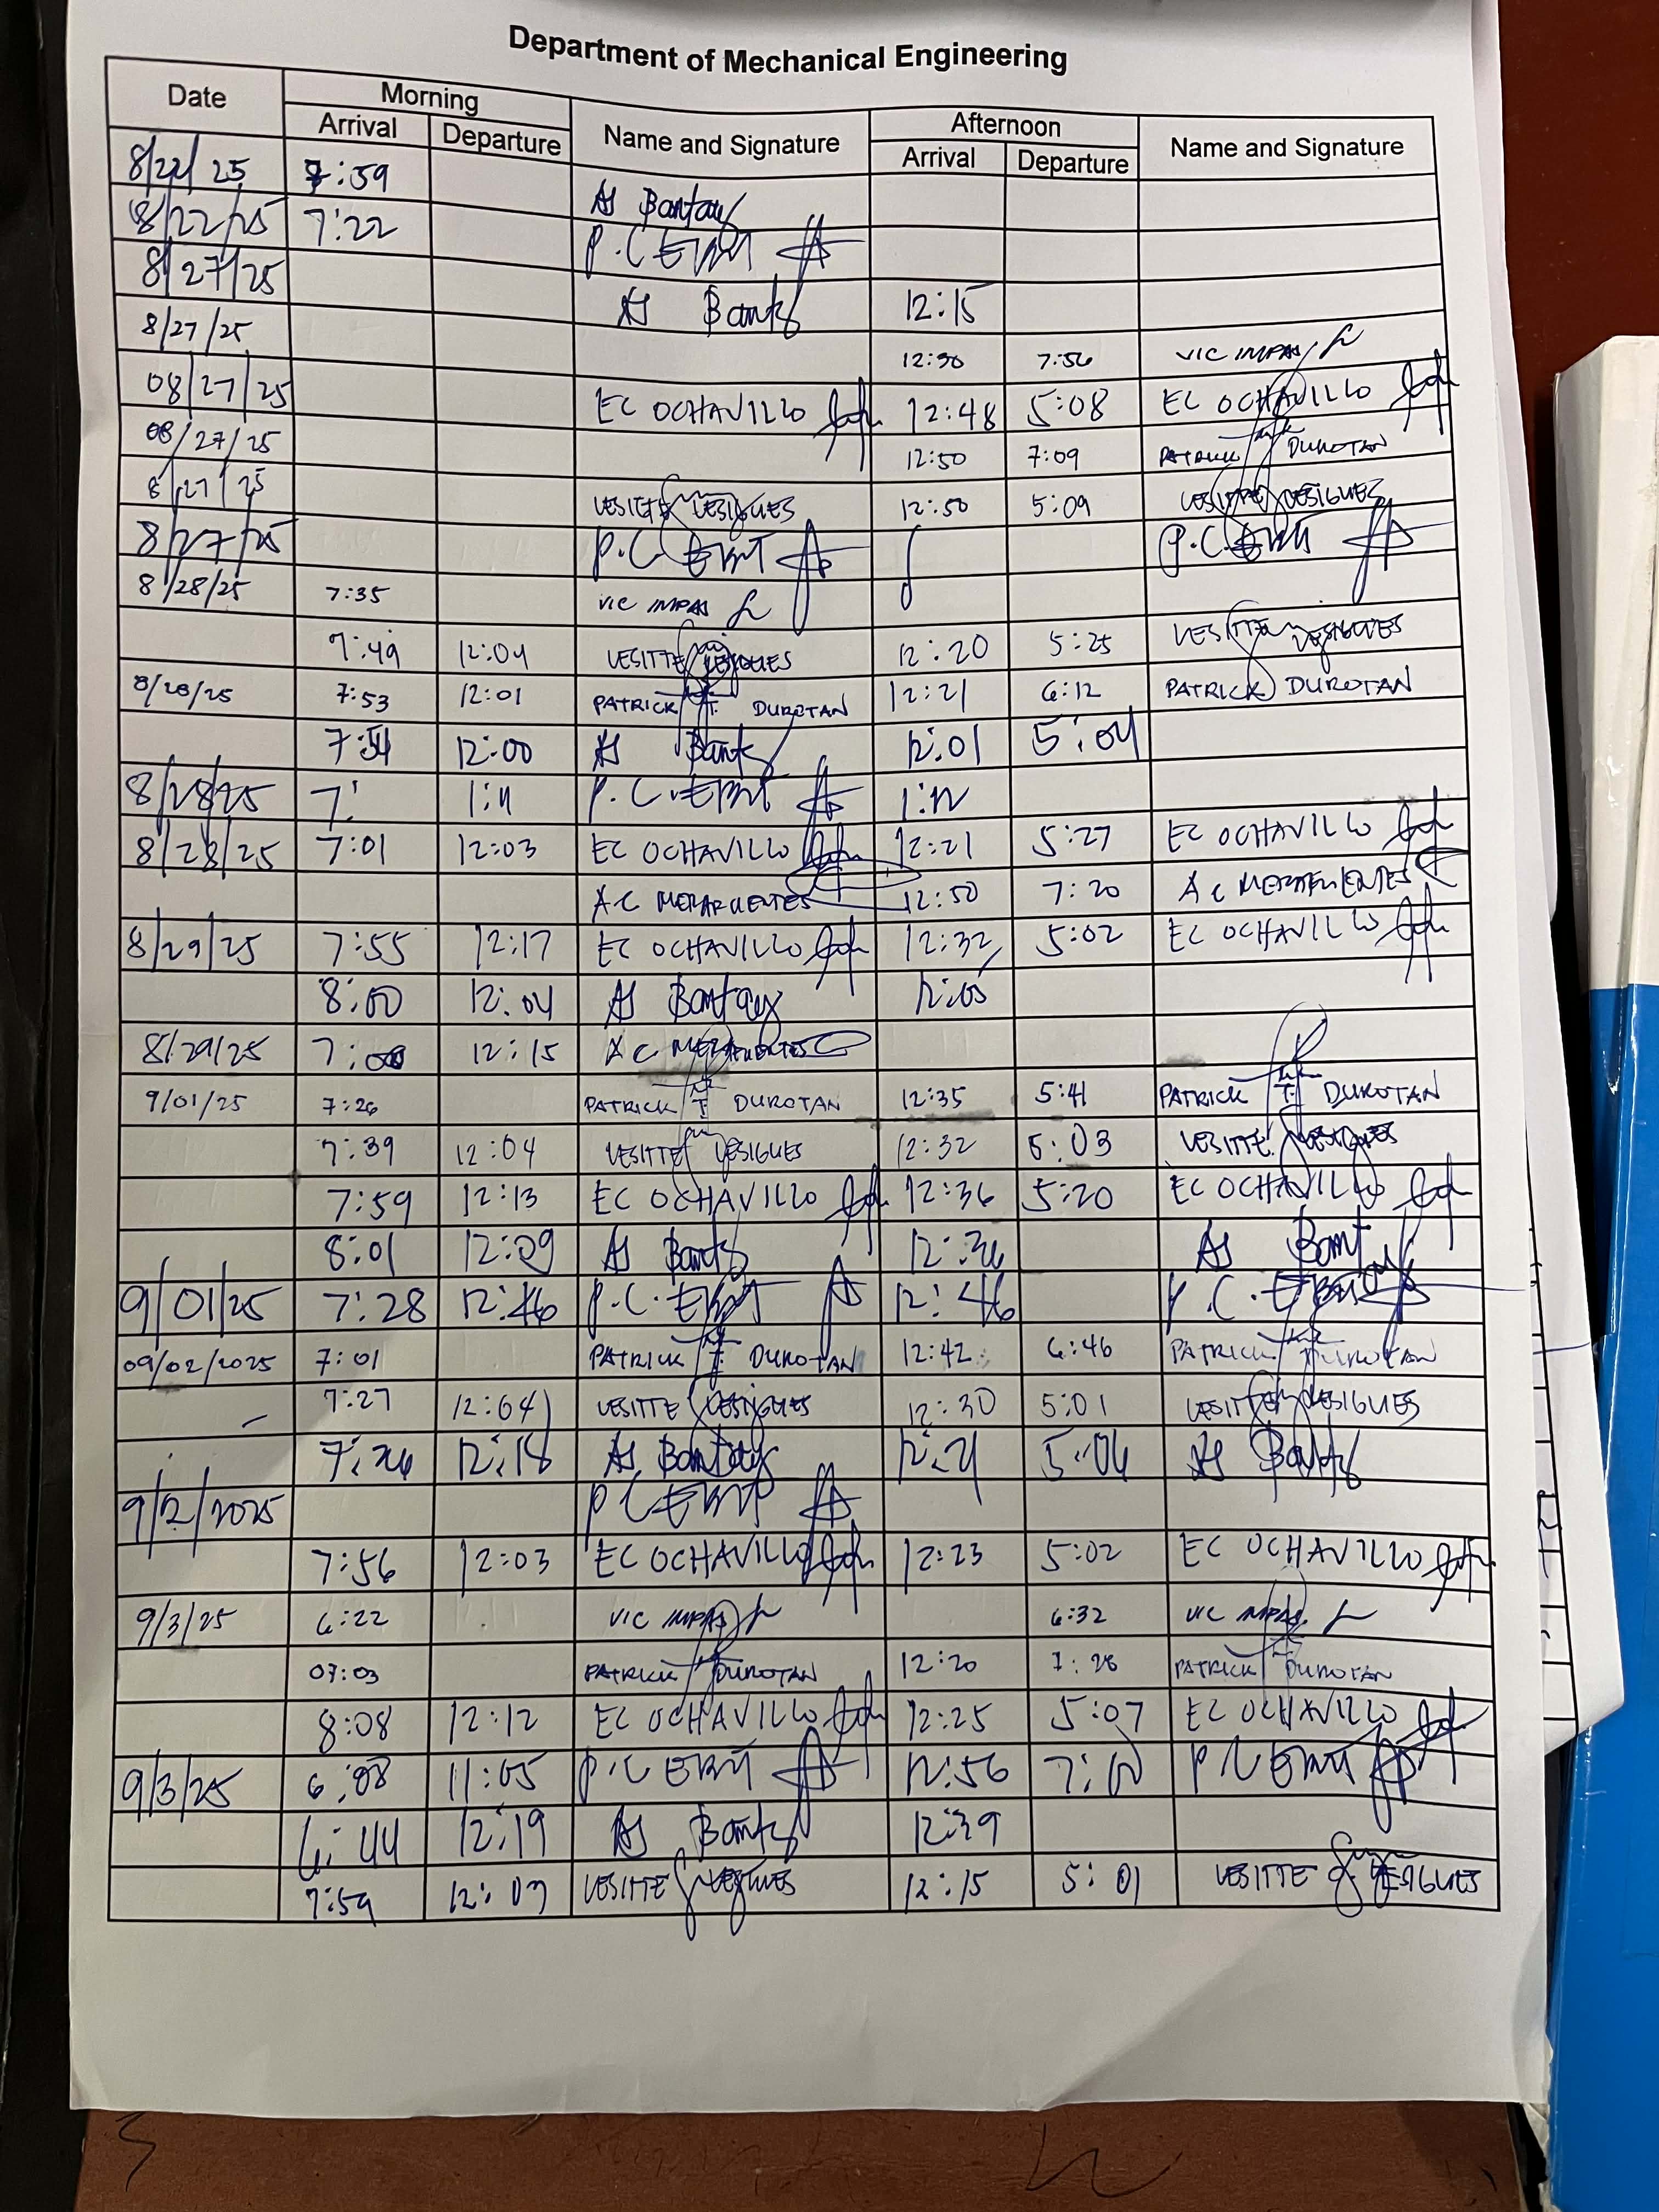 Department of Mechanical Engineering
Date Morning Name and Signature Afternoon Name and Signature
Arrival Departure Arrival Departure
8/22/25 7:59 AS Bantay
8/22/25 7:22 P.C EBIT
8/27/25 AS 12:15
8/27/25 12:30 7:56 VIC IMPAS
08/27/25 EC OCHAVILLO 12:48 5:08 EC OCHAVILLO
08/27/25 12:50 7:09 PATRICK DUROTAN
8/27/25 VESITTE VESIGUES 12:50 5:09 VESITTE VESIGUES
8/27/25 P.C. P.C.
8/28/25 7:35 VIC IMPAS
7:49 12:04 VESITTE VESIGUES 12:20 5:25 VESITTE VESIGUES
8/28/25 7:53 12:01 PATRICK T. DUROTAN 12:21 6:12 PATRICK DUROTAN
7:54 12:00 AS 12:01 5:04
8/28/25 7: 1:11 P.C. 1:12
8/28/25 7:01 12:03 EC OCHAVILLO 12:21 5:27 EC OCHAVILLO
A.C 12:50 7:20 A C
8/29/25 7:55 12:17 EC OCHAVILLO 12:32 5:02 EC OCHAVILLO
8:00 12:04 AS Bantay 12:05
8/29/25 12:15 A C
9/01/25 7:26 PATRICK T. DUROTAN 12:35 5:41 PATRICK T. DUROTAN
7:39 12:04 VESITTE VESIGUES 12:32 5:03 VESITTE VESIGUES
7:59 12:13 EC OCHAVILLO 12:36 5:20 EC OCHAVILLO
8:01 12:09 AS AS
9/01/25 7:28 12:46 P.C. 12:46 P.C.
09/02/2025 7:01 PATRICK T. DUROTAN 12:42 6:46 PATRICK DUROTAN
7:27 12:04 VESITTE VESIGUES 12:30 5:01 VESITTE VESIGUES
12:18 AS Bantay 12:21 5:06 AS
9/2/2025 P C
7:56 12:03 EC OCHAVILLO 12:23 5:02 EC OCHAVILLO
9/3/25 6:22 VIC IMPAS 6:32 VIC IMPAS
07:03 PATRICK DUROTAN 12:20 7:28 PATRICK DUROTAN
8:08 12:12 EC OCHAVILLO 12:25 5:07 EC OCHAVILLO
9/3/25 6:08 11:05 P.C EBIT 12:56 7:10 P.C EBIT
6:44 12:19 AS 12:39
7:59 12:03 VESITTE VESIGUES 12:15 5:01 VESITTE VESIGUES